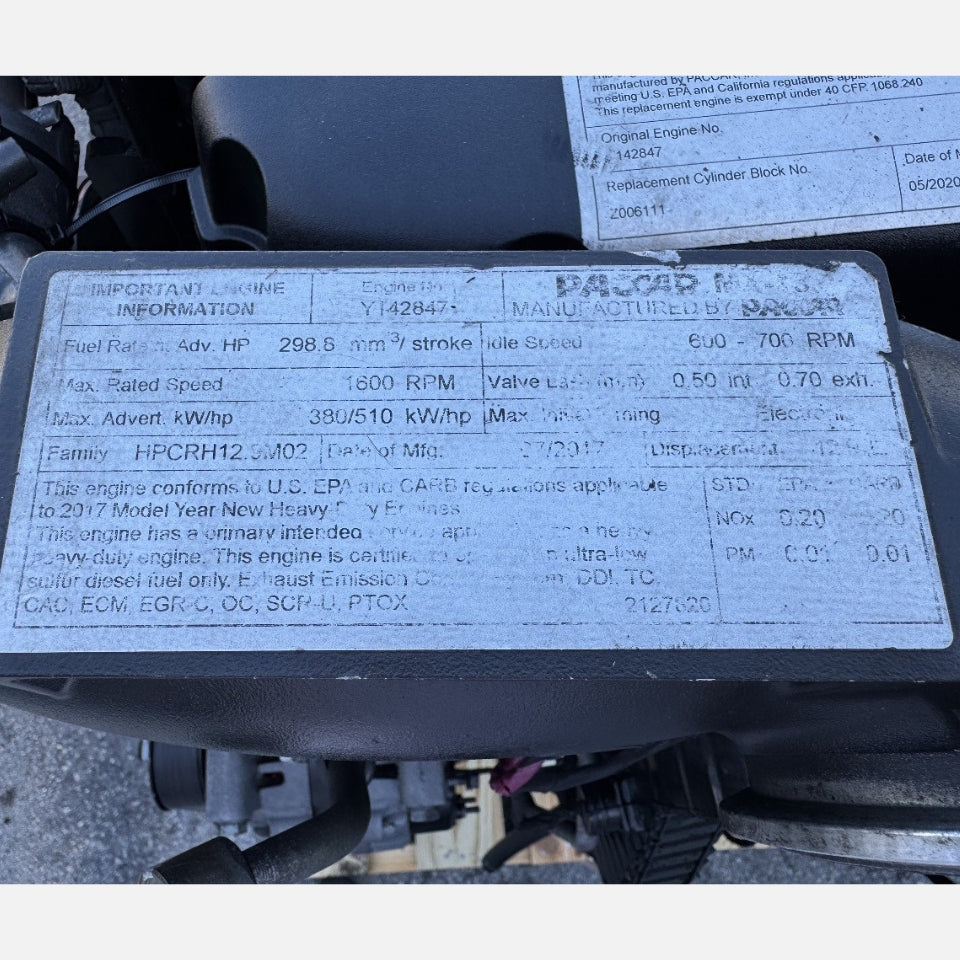 manufactured by PACCAR,
meeting U.S. EPA and California regulations
This replacement engine is exempt under 40 CFR 1068.240
Original Engine No.
142847
Date of
Replacement Cylinder Block No.
05/2020
Z006111
IMPORTANT ENGINE Engine No PACCAR
INFORMATION Y142847 MANUFACTURED BY PACCAR
Fuel Rate Adv. HP 298.8 mm³/ stroke Idle Speed 600 - 700 RPM
Max. Rated Speed 1600 RPM Valve Lash (mm) 0.50 int 0.70 exh.
Max. Advert. kW/hp 380/510 kW/hp Max. Timing Electronic
Family HPCRH12.9M02 Date of Mfg. 07/2017 Displacement
This engine conforms to U.S. EPA and CARB regulations applicable STD
to 2017 Model Year New Heavy Duty Engines
NOx 0.20
This engine has a primary intended heavy
heavy-duty engine. This engine is certified ultra-low PM 0.01 0.01
sulfur diesel fuel only. Exhaust Emission DDI, TC,
CAC, ECM, EGR-C, OC, SCR-U, PTOX